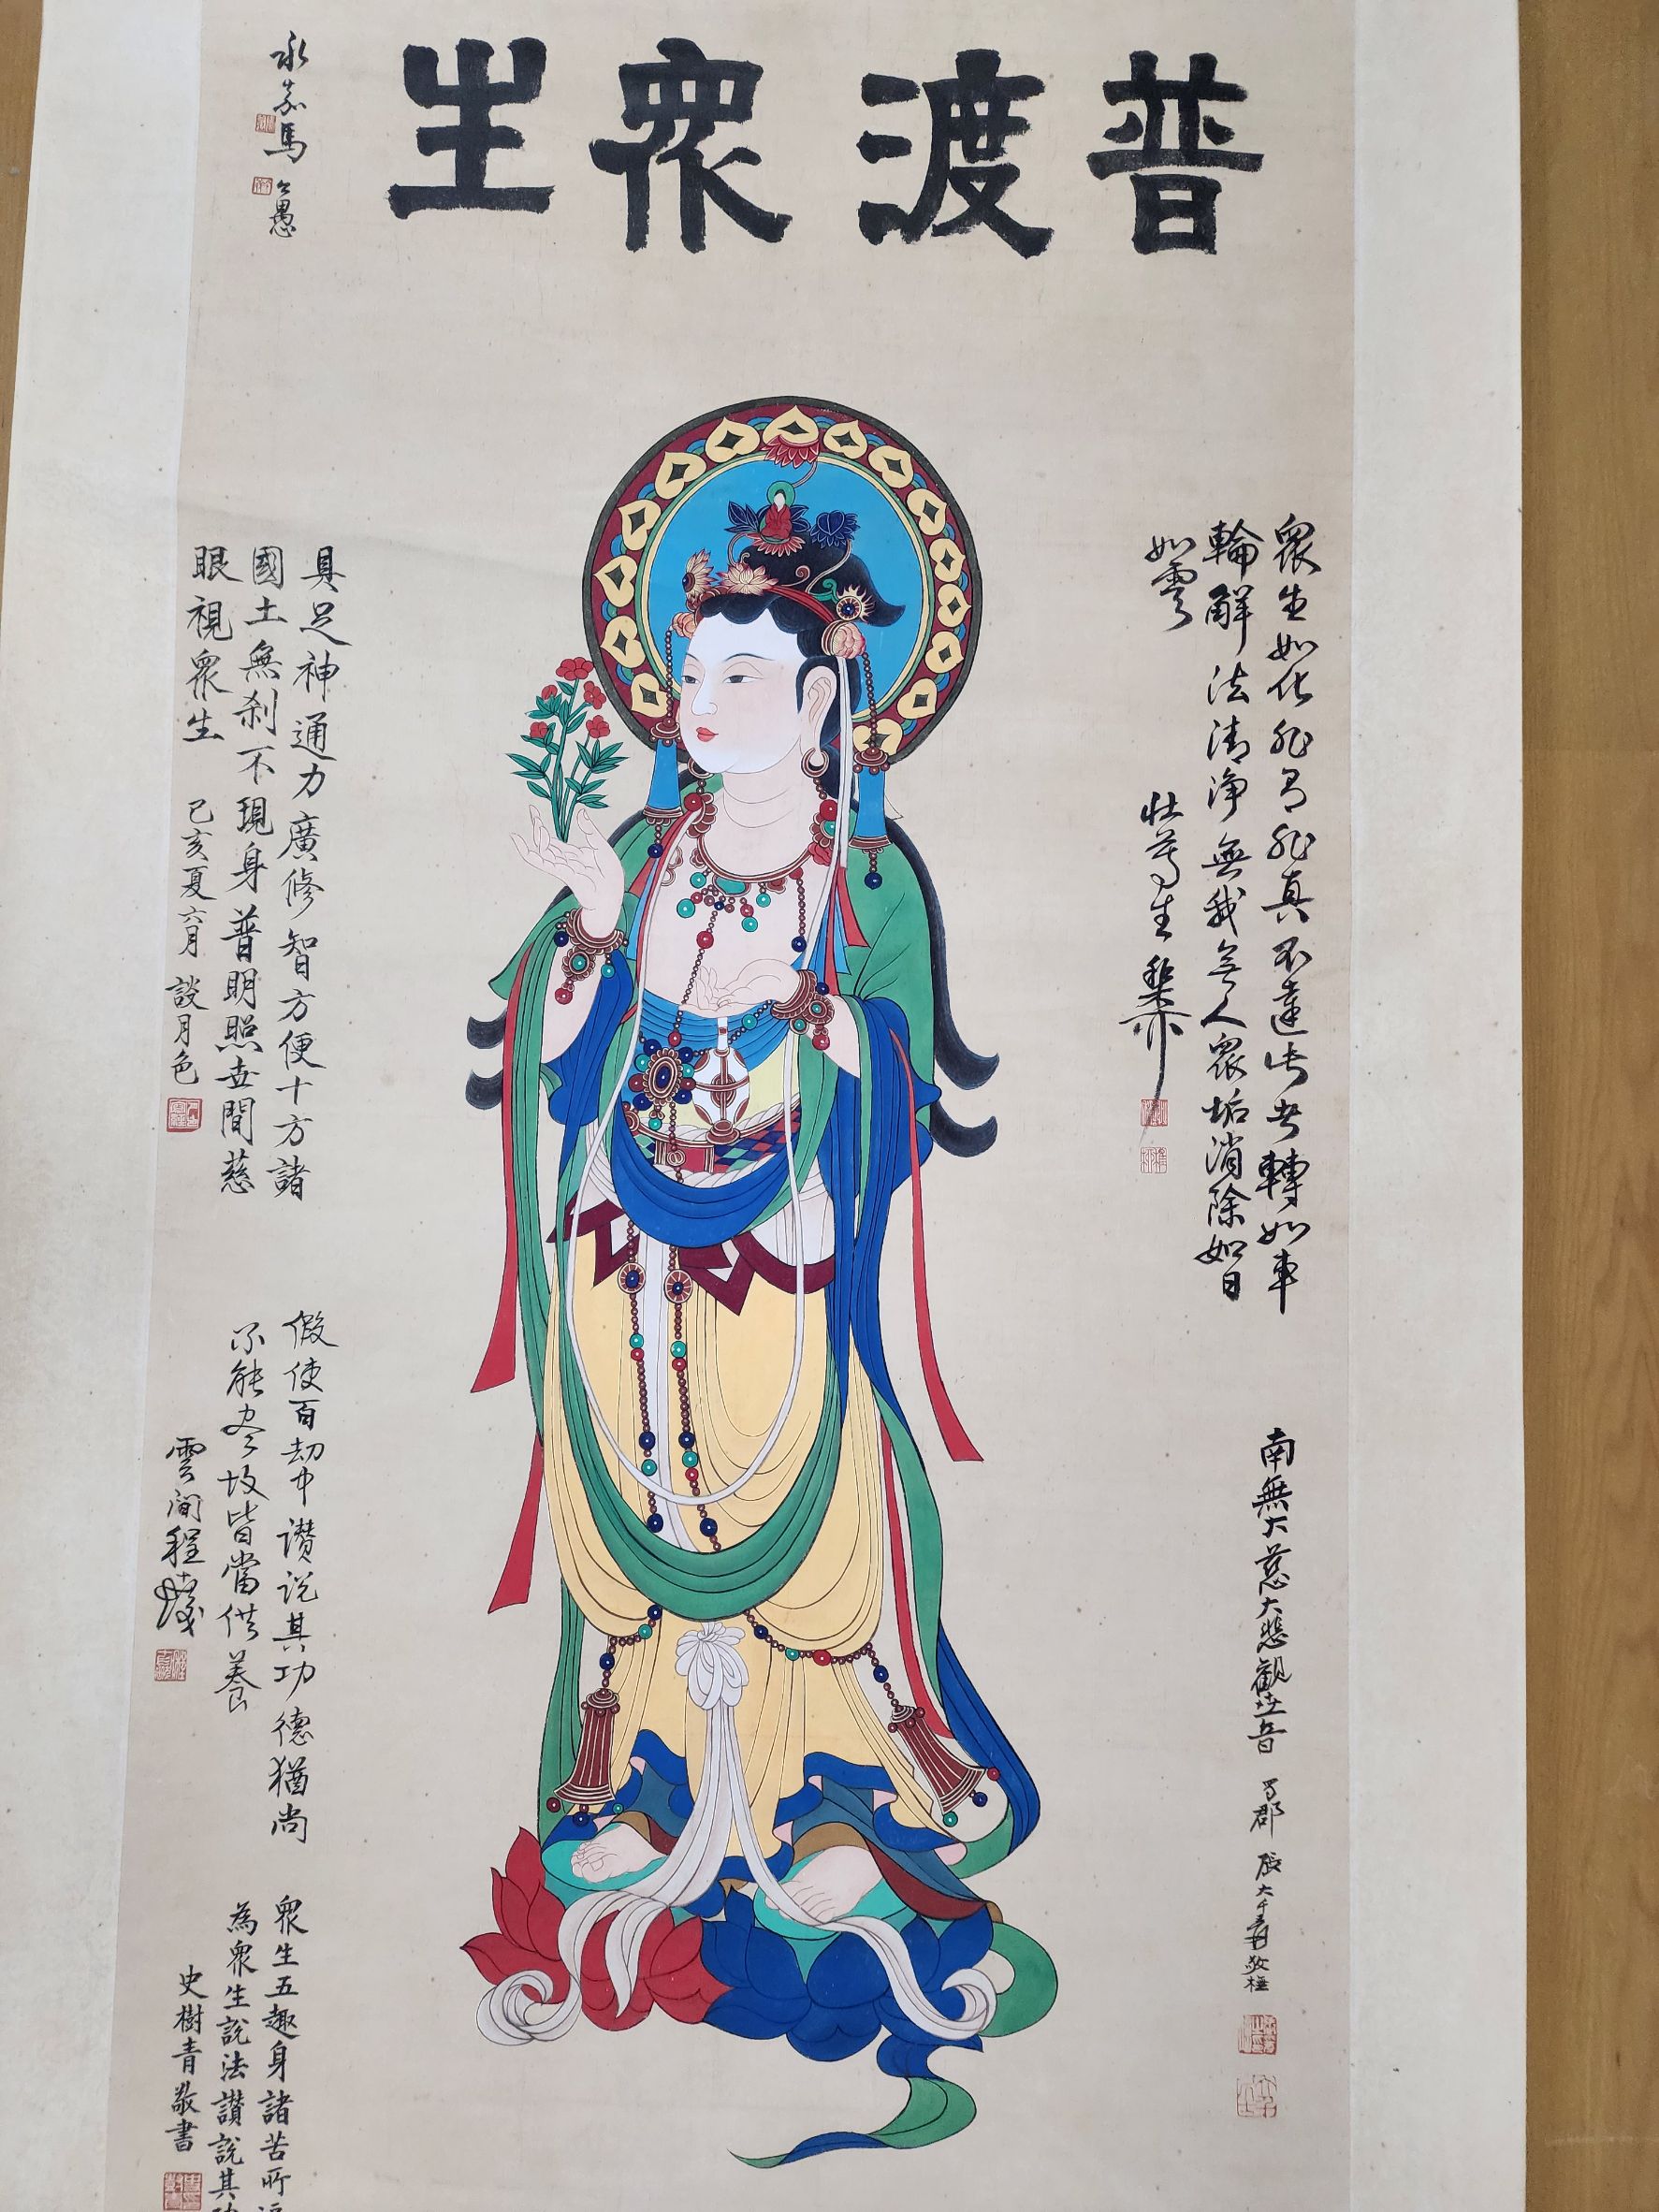 普渡眾生
永嘉馬公愚
眾生如化非有非真不達
轉如車
輪解法清淨無我無人眾垢消除如日
如雲
壯暮生
南無大慈大悲觀世音
蜀郡張大千爰敬
具足神通力廣修智方便十方諸
國土無剎不現身普明照世間慈
眼視眾生
己亥夏六月談月色
假使百劫中讚說其功德猶尚
不能盡故皆當供養
雲間程十髮
眾生五趣身諸苦所
為眾生說法讚說其功
史樹青敬書